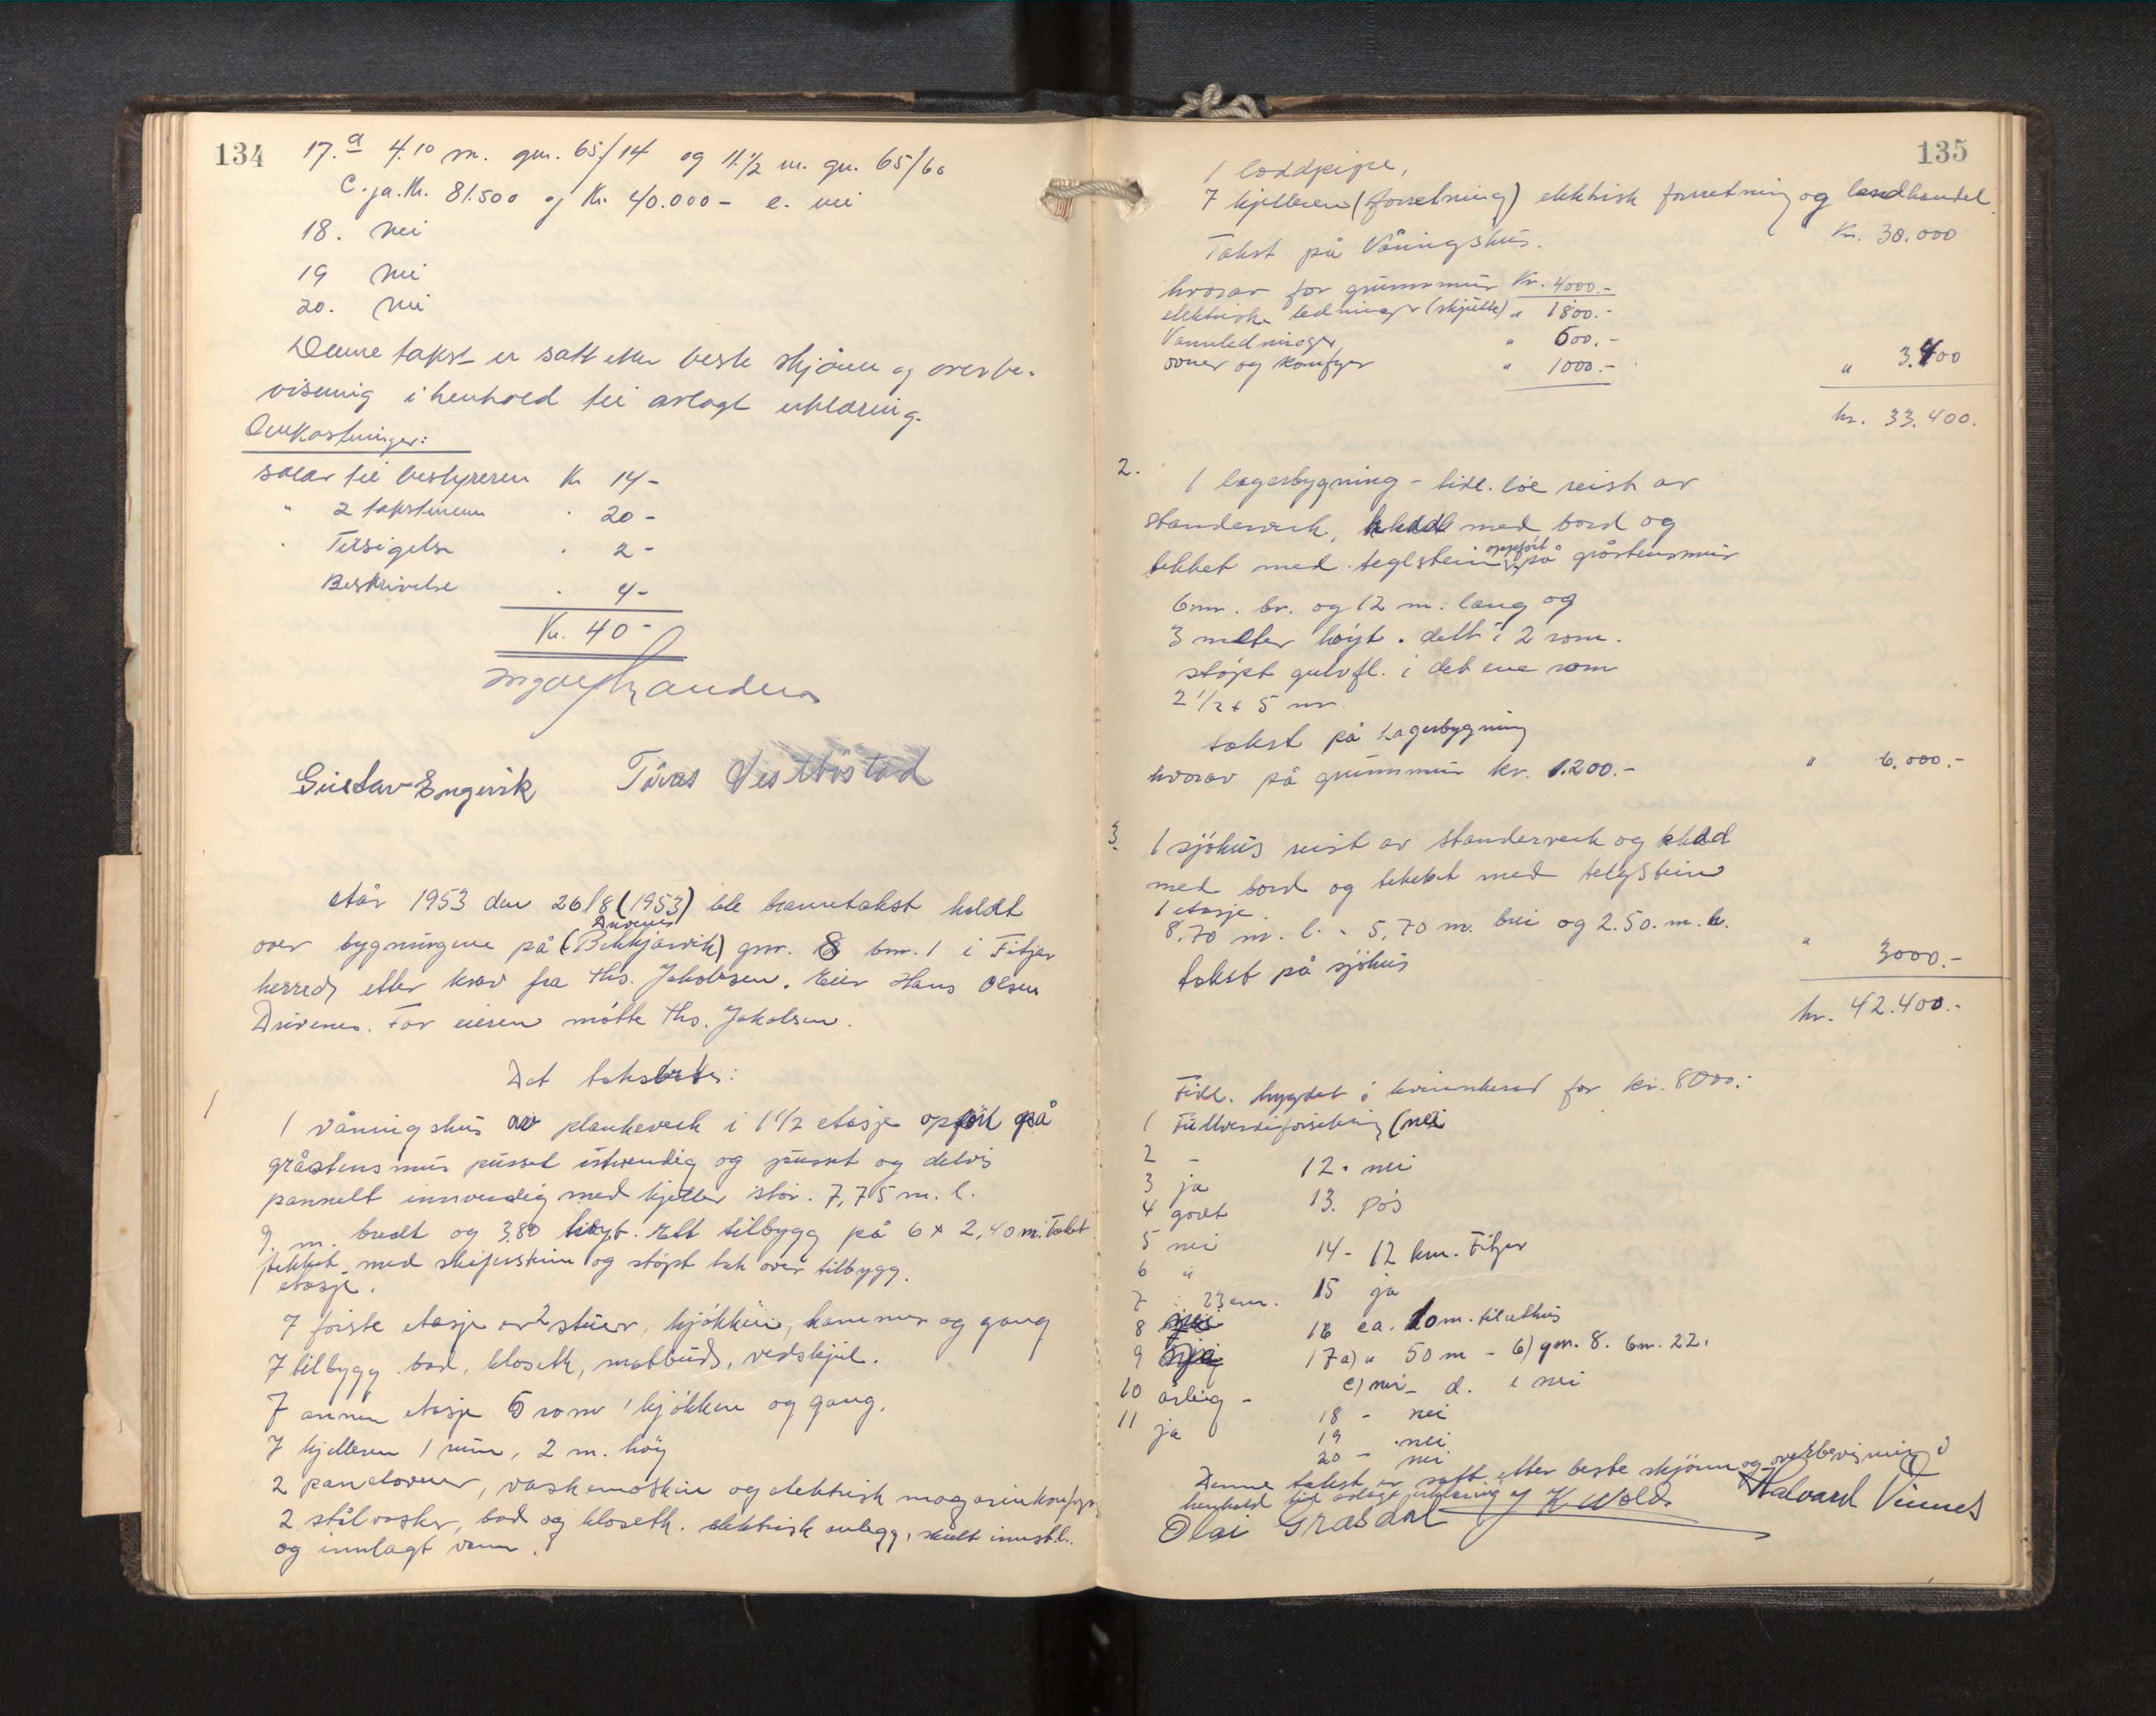 134
17. a 4.10 m. gnr. 65/14 og 11 1/2 m. gn. 65/60
C. ja. Kr. 81.500 og Kr. 40.000 - e. nei
18. nei
19 nei
20. nei
Denne takst er satt etter beste skjönn og overbe-
visning i henhold til avlagt erklæring.
Omkostninger:
Salær til bestyreren Kr 14 -
" 2 takstmenn " 20 -
" Tilsigelse " 2 -
Beskrivelse " 4 -
Kr. 40 -
Gustav Engevik
År 1953 den 26/8 (1953) ble branntakst holdt
Drivenes
over bygningene på (Bekkjarvik) gnr. 8 bnr. 1 i Fitjar
herred, etter krav fra Ths. Jakobsen. Eier Hans Olsen
Drivenes. For eieren mötte Ths. Jakobsen.
Det takstertes:
1
1 våningshus av plankeverk i 1 1/2 etasje opfört på
gråstensmur pusset utvendig og pusset og delvis
pannelt innvendig med kjeller stör. 7,75 m. l.
9 m. bredt og 3.80 höyt. Ett tilbygg på 6 x 2,40 m. Taket
tekket med skiferstein og stöpt tak over tilbygg.
1 etasje.
I förste etasje er 2 stuer, kjökken, kammer og gang
I tilbygg bad, klosett, matbud, vedskjul.
I annen etasje 5 rom 1 kjökken og gang.
I kjelleren 1 rum, 2 m. höy
2 panelovner, vaskemaskin og elektrisk magasinkomfyr,
2 stålvasker, bad og klosett. elektrisk anlegg, skult innstl.
og innlagt vann.
135
1 loddpipe,
I kjelleren (forretning) elektrisk forretning og landhandel.
Takst på Våningshus. Kr. 30.000
hvorav for grunnmur Kr. 4000.-
elektriske ledninger (skjulte) " 1800.-
Vannledninger " 600.-
ovner og komfyr " 1000.- " 3.400
kr. 33.400.
2.
1 lagerbygning - tidl. löe reist av
standerverk, kledd med bord og
tekket med teglstein oppfört på gråstensmur
6 m. br. og 12 m. lang og
3 meter höyt. delt i 2 rom.
stöpt gulvfl. i det ene rom
2 1/2 x 5 m.
takst på Lagerbygning
hvorav på grunnmur kr. 1.200.- " 6.000.-
3.
1 sjöhus reist av standerverk og kledd
med bord og tekket med teglstein
1 etasje.
8,70 m. l. - 5,70 m. brei og 2.50. m. h.
takst på sjöhus " 3000.-
kr. 42.400.-
Tidl. bygdet i kvinnherad for kr. 8000.-
1 Fullverdiforsikring (nei
2 -
12. nei
3 ja
13. Pös
4 godt
5 nei
14 - 12 km. Fitjar
6 "
15 ja
7 : 23 cm.
8
16 ca. 10 m. til uthus
9
17 a) " 50 m - b) gnr. 8. bnr. 22.
10 årlig -
c) nei - d. e nei
11 ja
18 - nei
19 . nei
20 - nei
Denne takst er satt etter beste skjönn og overbevisning i
henhold til avlagt erklæring
Halvard Vinnes
Olai Grasdal K Wold